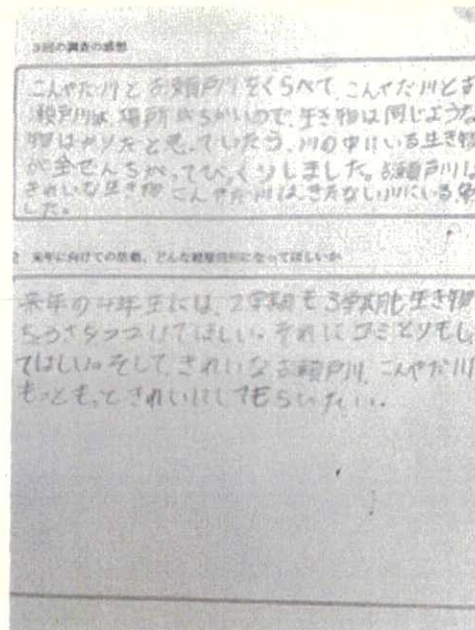 3回の調査の感想
こんやた川とお瀬戸川をくらべて、こんやた川とお
瀬戸川は、場所がちがいので、生き物は同じような
物ばかりだと思っていたら、川の中にいる生き物
が全ぜんちがってびっくりしました。お瀬戸川は
きれいな生き物 こんやた川は、きたない川にいる
した。
2 来年に向けての活動、どんな瀬戸川になってほしいか
来年の4年生には、2学期も3学期も生き物
ちょうさをつづけてほしい。それにゴミとりもし
てほしい。そして、きれいなお瀬戸川、こんやた川
もっともっときれいにしてもらいたい。